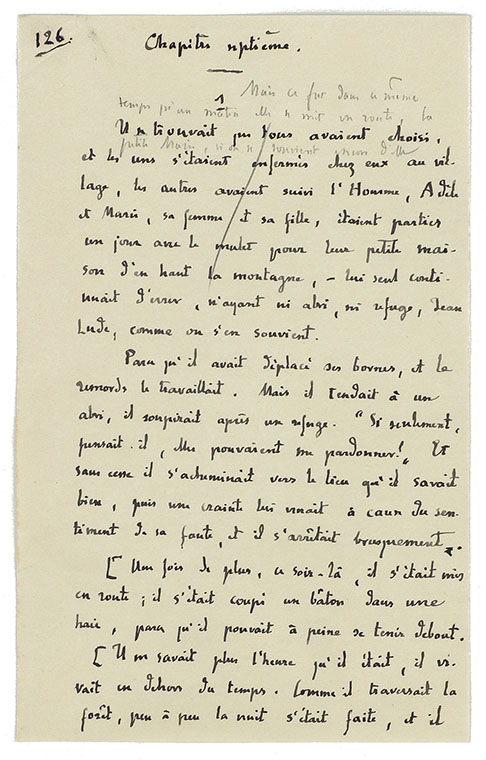 126.
Chapitre septième.
1
Mais ce fut dans ce même
temps qu'un matin elle se mit en route, la
petite Marie, si on se souvient encore d'elle
Il se trouvait que tous avaient choisi,
et les uns s'étaient enfermés chez eux au vil-
lage, les autres avaient suivi l'Homme, Adèle
et Marie, sa femme et sa fille, étaient parties
un jour avec le mulet pour leur petite mai-
son d'en haut la montagne, – lui seul conti-
nuait d'errer, n'ayant ni abri, ni refuge, Jean
Lude, comme on s'en souvient.
Parce qu'il avait déplacé ses bornes, et le
remords le travaillait. Mais il tendait à un
abri, il soupirait après un refuge. "Si seulement,
pensait-il, elles pouvaient me pardonner!" Et
sans cesse il s'acheminait vers le lieu qu'il savait
bien, puis une crainte lui venait à cause du sen-
timent de sa faute, et il s'arrêtait brusquement.
[Une fois de plus, ce soir-là, il s'était mis
en route ; il s'était coupé un bâton dans une
haie, parce qu'il pouvait à peine se tenir debout.
[Il ne savait plus l'heure qu'il était, il vi-
vait en dehors du temps. Comme il traversait la
forêt, peu à peu la nuit s'était faite, et il